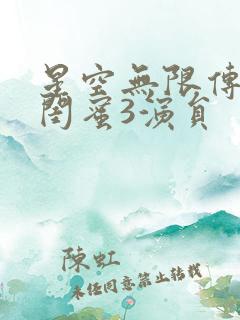 星空無限傳
閨蜜3-演員
陳虹
未经同意禁止转载